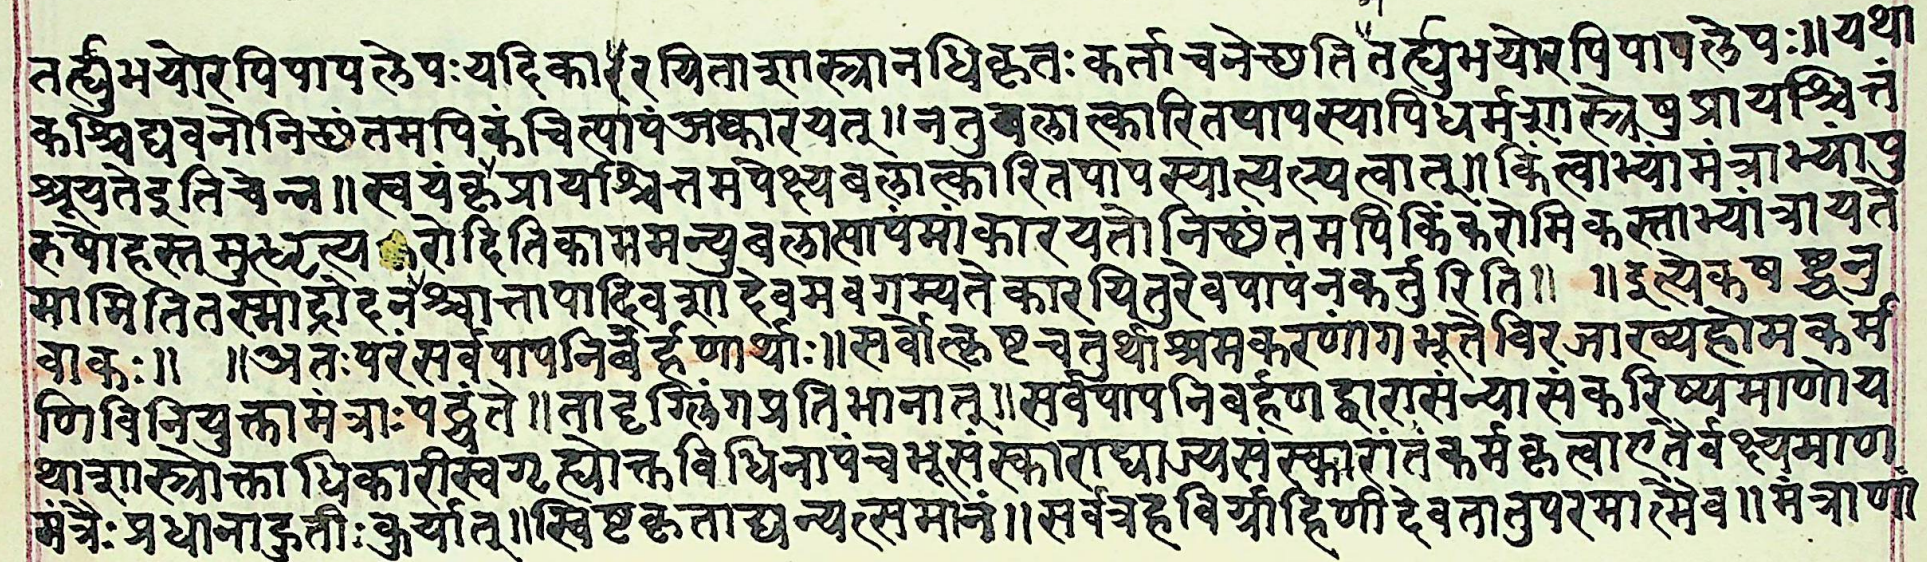 तर्ह्युभयोरपिपापलेपःयदिकाररयिताशास्त्रानधिकृतःकर्ताचनेच्छतितर्ह्युभयोरपिपापलेपः॥यथा
कश्चिद्यवनोनिच्छंतमपिकंचित्पापंअकारयत्॥नतुबलात्कारितपापस्यापिधर्मशास्त्रेषुप्रायश्चित्तं
श्रूयतेइतिचेन्न॥स्वयंकृप्रायश्चित्तमपेक्ष्यबलात्कारितपापस्यात्यल्प्यत्वात्॥किंत्वाभ्यांमंत्राभ्यांपु
रुषोहस्तमुत्धृत्य रोदितिकाममन्युबलात्पापंमांकारयतोनिच्छंतमपिकिंकरोमिकस्ताभ्यांत्रायते
मामितितस्माद्रोदनश्चात्तापादिवशादेवमवगम्यतेकारयितुरेवपापंनकर्तुरिति॥ ॥इत्येकषष्ट्यनु
वाकः॥ ॥अतःपरंसर्वपापनिबर्हणार्थाः॥सर्वोत्कृष्टचतुर्थाश्रमकरणांगभूतेविरजाख्यहोमकर्म
णिविनियुक्तामंत्राःपठ्यंते॥तादृग्लिंगप्रतिभानात्॥सर्वपापनिबर्हणद्वारासंन्यासंकरिष्यमाणोय
थाशास्त्रोक्ताधिकारीस्वगृह्योक्तविधिनापंचभूसंस्काराद्याज्यसंस्कारांतंकर्मकृत्वाएतैर्वक्ष्यमाण
मंत्रैःप्रधानाहुतीःकुर्यात्॥स्विष्टकृताद्यन्यत्समानं॥सर्वत्रहविर्याहिणीदेवतातुपरमात्मैव॥मंत्राणां